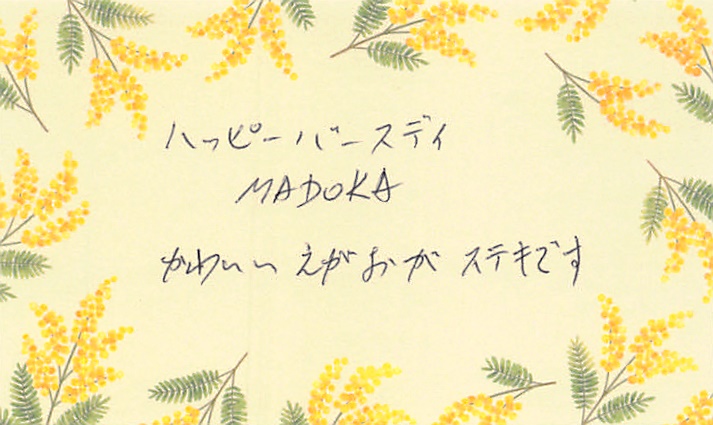 ハッピーバースディ
MADOKA
かわいい えがおが ステキです